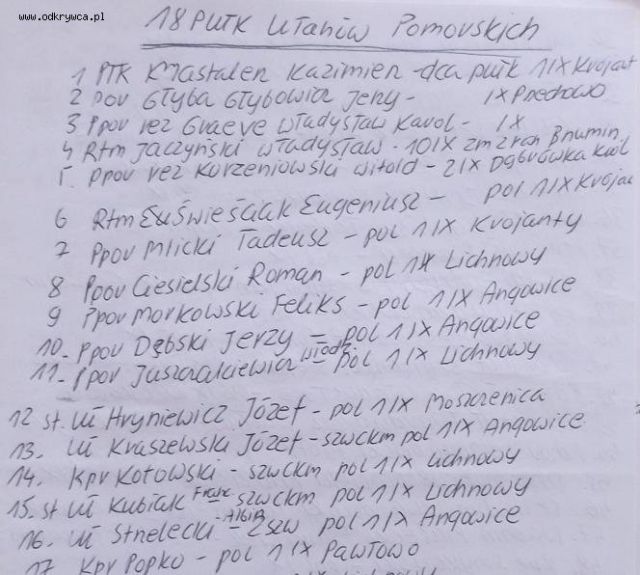 www.odkrywca.pl
18 PUŁK UŁANÓW POMORSKICH
1 PŁK Mastalerz Kazimierz - dca pułk 1 IX Krojant
2 Por Głyba Głybowicz Jerzy - IX Przechowo
3 Ppor rez Graeve Władysław Karol - IX
4 Rtm Jaczyński Władysław - 10 IX zm z ran Brwinin
5. Ppor rez Korzeniowski Witold - 2 IX Dąbrówka Król
6 Rtm Świeściak Eugeniusz - pol 1 IX Kroja
7 Ppor Mlicki Tadeusz - pol 1 IX Krojanty
8 Ppor Ciesielski Roman - pol 1 IX Lichnowy
9 Ppor Morkowski Feliks - pol 1 IX Angowice
10. Ppor Dębski Jerzy - pol 1 IX Angowice
11. Ppor Juszczakiewicz Włodz - pol 1 IX Lichnowy
12 st. uł Hryniewicz Józef - pol 1 IX Moszczenica
13. uł Kraszewski Józef - szwckm pol 1 IX Angowice
14. Kpr Kotowski - szwckm pol 1 IX Lichnowy
15. st uł Kubiak Franc - szwckm pol 1 IX Lichnowy
16. uł Strzelecki Albin - 2 szw pol 1 IX Angowice
17 Kpr Popko - pol 1 IX Pawłowo